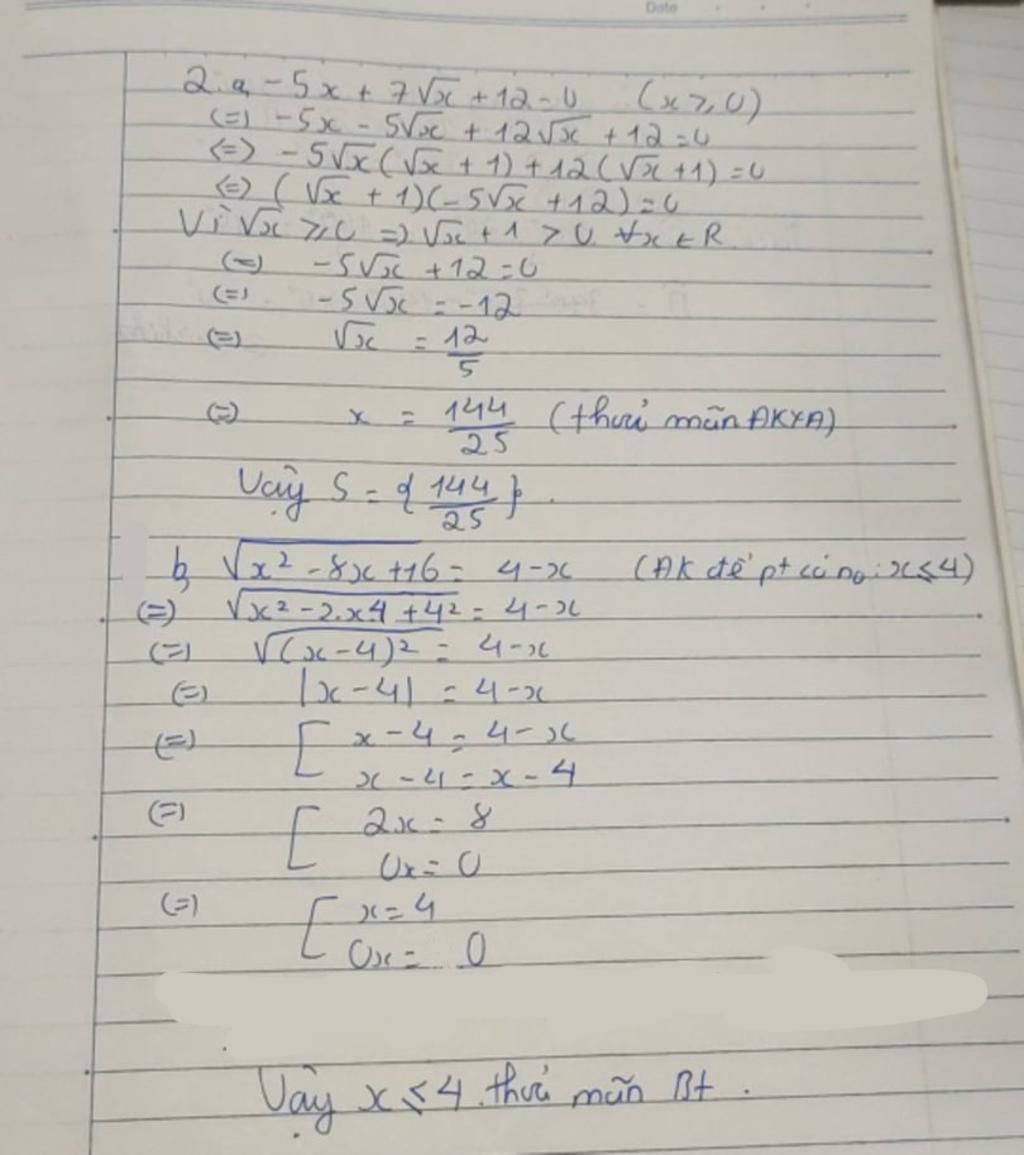 Date
2.a, -5x + 7√x + 12 = 0 (x ≥ 0)
(=) -5x - 5√x + 12√x + 12 = 0
<=> -5√x(√x + 1) + 12(√x + 1) = 0
<=> (√x + 1)(-5√x + 12) = 0
Vì √x ≥ 0 => √x + 1 > 0 ∀x ∈ R
(=) -5√x + 12 = 0
(=) -5√x = -12
(=) √x = 12/5
(=) x = 144/25 (thoả mãn ĐKXĐ)
Vậy S = {144/25}.
b, √(x² - 8x + 16) = 4-x (ĐK để pt có no: x ≤ 4)
(=) √(x² - 2.x.4 + 4²) = 4-x
(=) √((x-4)²) = 4-x
(=) |x-4| = 4-x
(=) [ x-4 = 4-x
x-4 = x-4
(=) [ 2x = 8
0x = 0
(=) [ x = 4
0x = 0
Vậy x ≤ 4 thoả mãn Bt.